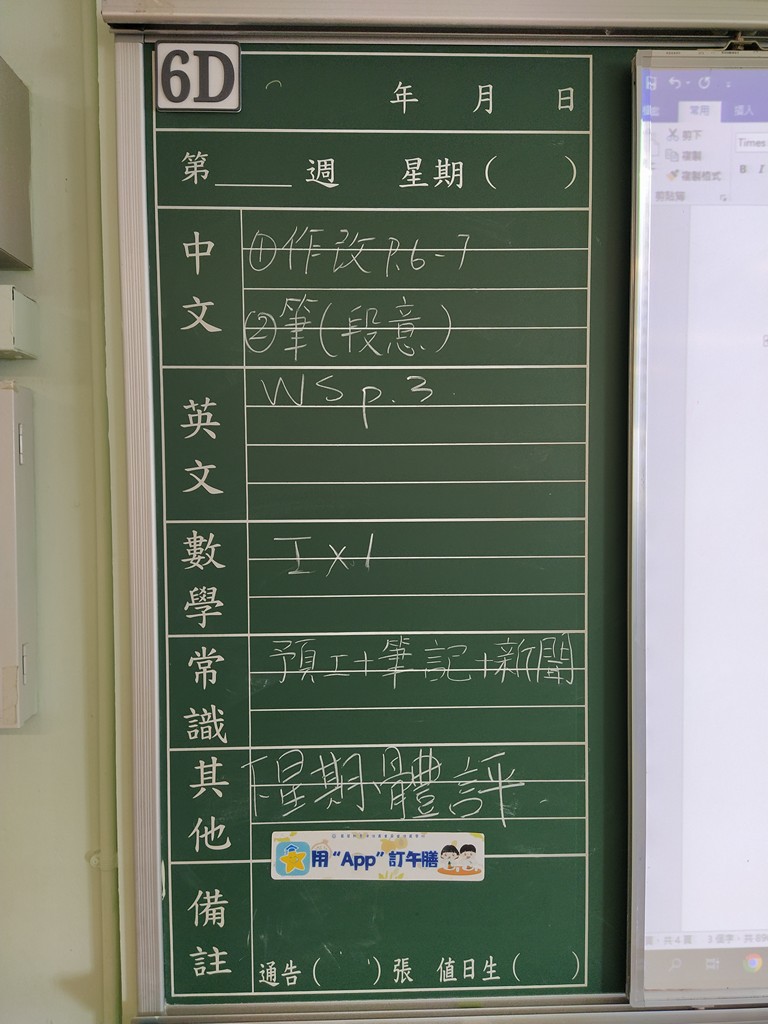 6D
年 月 日
第____週 星期（ ）
中文
①作改 P.6-7
②筆(段意)
英文
WS p.3.
數學
工x1
常識
預工+筆記+新聞
其他
下星期體評.
用“App”訂午膳
備註
通告（ ）張 值日生（ ）
常用
插入
剪下
複製
複製格式
剪貼簿
Times
B I